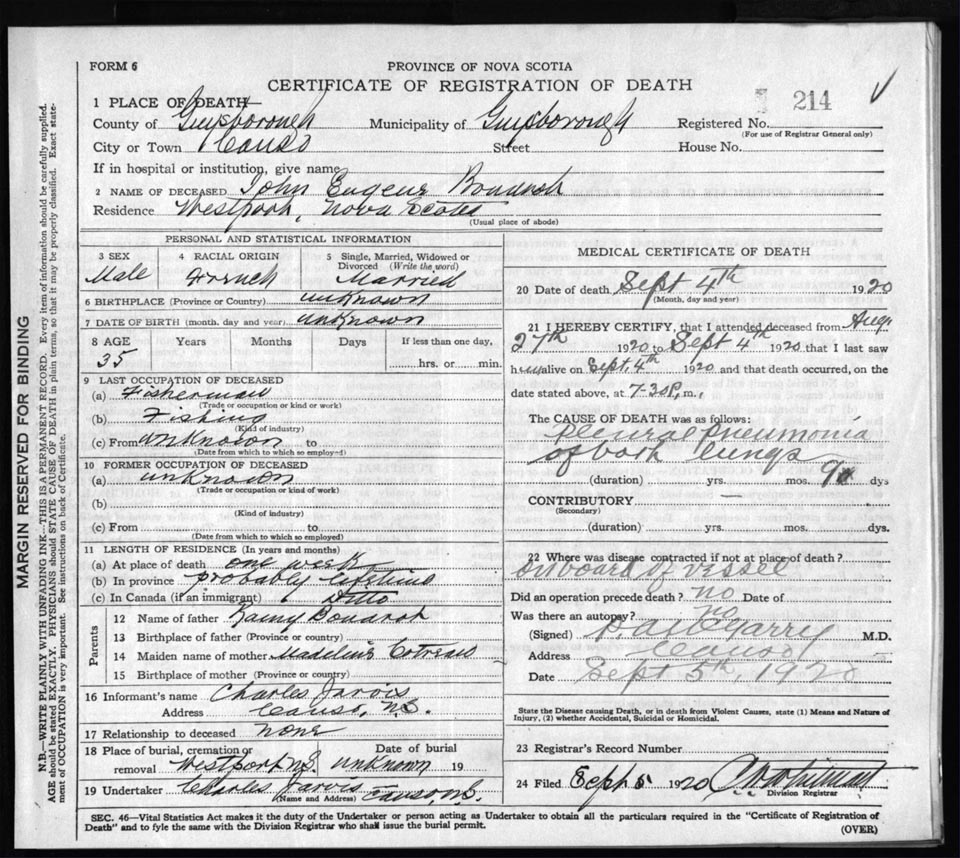 FORM 6
PROVINCE OF NOVA SCOTIA
CERTIFICATE OF REGISTRATION OF DEATH
214
1 PLACE OF DEATH
County of Guysborough Municipality of Guysborough Registered No.
(For use of Registrar General only)
City or Town Canso Street House No.
If in hospital or institution, give name
2 NAME OF DECEASED John Eugene
Residence Westport, Nova Scotia
(Usual place of abode)
PERSONAL AND STATISTICAL INFORMATION
3 SEX 4 RACIAL ORIGIN 5 Single, Married, Widowed or Divorced (Write the word)
Male French Married
6 BIRTHPLACE (Province or Country) unknown
7 DATE OF BIRTH (month, day and year) unknown
8 AGE Years Months Days If less than one day,
35 hrs. or min.
9 LAST OCCUPATION OF DECEASED
(a) Fisherman
(Trade or occupation or kind or work)
(b) Fishing
(Kind of industry)
(c) From unknown to
(Date from which to which so employed)
10 FORMER OCCUPATION OF DECEASED
(a) unknown
(Trade or occupation or kind of work)
(b)
(Kind of industry)
(c) From to
(Date from which to which so employed)
11 LENGTH OF RESIDENCE (In years and months)
(a) At place of death one week
(b) In province probably lifetime
(c) In Canada (if an immigrant) Ditto
Parents
12 Name of father
13 Birthplace of father (Province or country)
14 Maiden name of mother Madeline
15 Birthplace of mother (Province or country)
16 Informant's name Charles Jarvis
Address Canso, N.S.
17 Relationship to deceased none
18 Place of burial, cremation or removal Westport N.S. Date of burial unknown 19
19 Undertaker Charles Jarvis Canso, N.S.
(Name and Address)
MEDICAL CERTIFICATE OF DEATH
20 Date of death Sept 4th 1920
(Month, day and year)
21 I HEREBY CERTIFY, that I attended deceased from Aug
27th 1920 to Sept 4th 1920 that I last saw
him alive on Sept. 4th 1920 and that death occurred, on the
date stated above, at 7-30 P. m.,
The CAUSE OF DEATH was as follows:
Pleural Pneumonia
of both lungs
(duration) yrs. mos. 9 dys
CONTRIBUTORY —
(Secondary)
(duration) yrs. mos. dys.
22 Where was disease contracted if not at place of death?
on board of vessel
Did an operation precede death? no Date of
Was there an autopsy? no
(Signed) M.D.
Address Canso
Date Sept 5th, 1920
State the Disease causing Death, or in death from Violent Causes, state (1) Means and Nature of
Injury, (2) whether Accidental, Suicidal or Homicidal.
23 Registrar's Record Number
24 Filed Sept 5 1920
Division Registrar
SEC. 46—Vital Statistics Act makes it the duty of the Undertaker or person acting as Undertaker to obtain all the particulars required in the "Certificate of Registration of
Death" and to fyle the same with the Division Registrar who shall issue the burial permit.
(OVER)
MARGIN RESERVED FOR BINDING
N.B.—WRITE PLAINLY WITH UNFADING INK—THIS IS A PERMANENT RECORD. Every item of information should be carefully supplied.
AGE should be stated EXACTLY. PHYSICIANS should STATE CAUSE OF DEATH in plain terms, so that it may be properly classified. Exact state-
ment of OCCUPATION is very important. See instructions on back of Certificate.